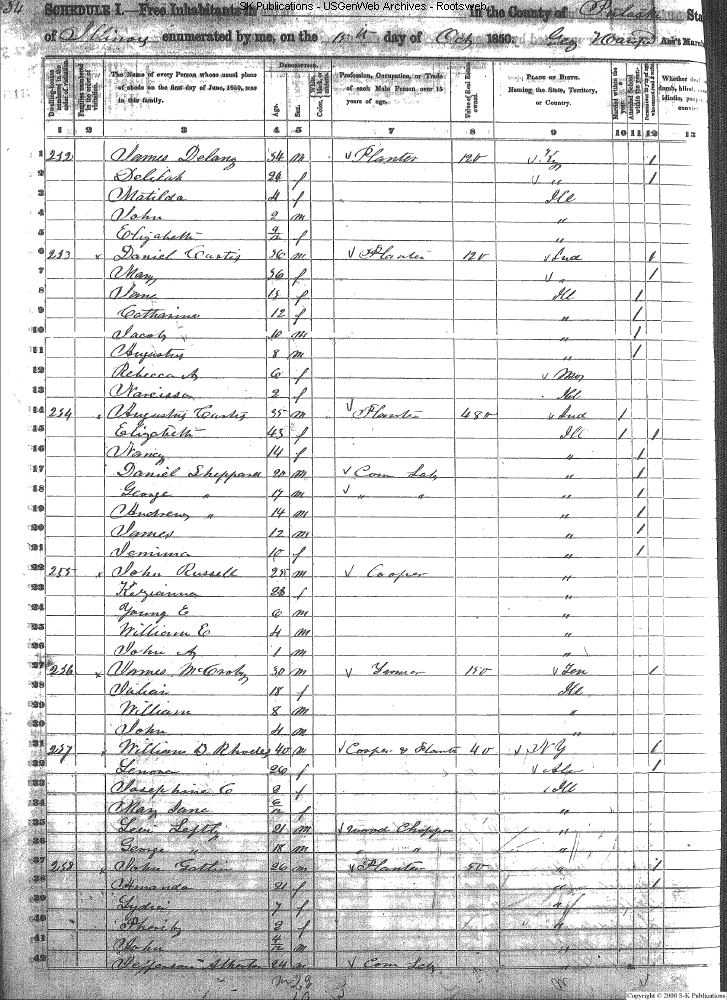 34
SK Publications - USGenWeb Archives - Rootsweb
SCHEDULE I.—Free Inhabitants in in the County of Pulaski Sta
of Illinois enumerated by me, on the 11th day of Oct 1850. Ass't Marsh
Dwelling-houses numbered in the order of visitation.
Families numbered in the order of visitation.
The Name of every Person whose usual place of abode on the first day of June, 1850, was in this family.
DESCRIPTION.
Age.
Sex.
Color,
Profession, Occupation, or Trade of each Male Person over 15 years of age.
Value of Real Estate owned.
PLACE OF BIRTH.
Naming the State, Territory, or Country.
Married within the year.
Whether deaf
dumb, blind,
idiotic,
1 2 3 4 5 6 7 8 9 10 11 12 13
1 252 James Delany 34 m Planter 120 Ky /
2 Delilah f " /
3 Matilda 4 f Ill
4 John 2 m "
5 Elizabeth f "
6 253 Daniel Curtis 36 m Planter 120 Ind /
7 Mary 36 f " /
8 Jane f Ill /
9 Catharine 12 f " /
10 Jacob 10 m " /
11 Augustus 8 m " /
12 Rebecca A 6 f
13 Narcissa 2 f Ill
14 254 Augustus Curtis 35 m Planter 480 Ind /
15 Elizabeth 43 f Ill / /
16 Nancy 14 f " /
17 Daniel Sheppard 20 m Com Lab " /
18 George " 17 m " " " /
19 Andrew " 14 m " /
20 James 12 m " /
21 Jemima 10 f " /
22 255 John Russell m Cooper "
23 Kezianna f "
24 Young E 6 m "
25 William E 4 m "
26 John A 1 m "
27 256 James McCroby 30 m 150 Ten /
28 18 f Ill
29 William 8 m "
30 John 4 m "
31 257 William D Rhodes 40 m Cooper & Plante 40 N Y /
32 Lenora 26 f Ala /
33 Josephine C 2 f Ill
34 Mary Jane f "
35 Levi Lefty 21 m wood Chopper "
36 George " 18 m " " "
37 258 John Gatlin 26 m Planter 50 " /
38 Amanda 21 f " /
39 Lydia 7 f "
40 2 f "
41 John m "
42 Jefferson 24 m Com Lab "
Copyright © 2000 S-K Publications